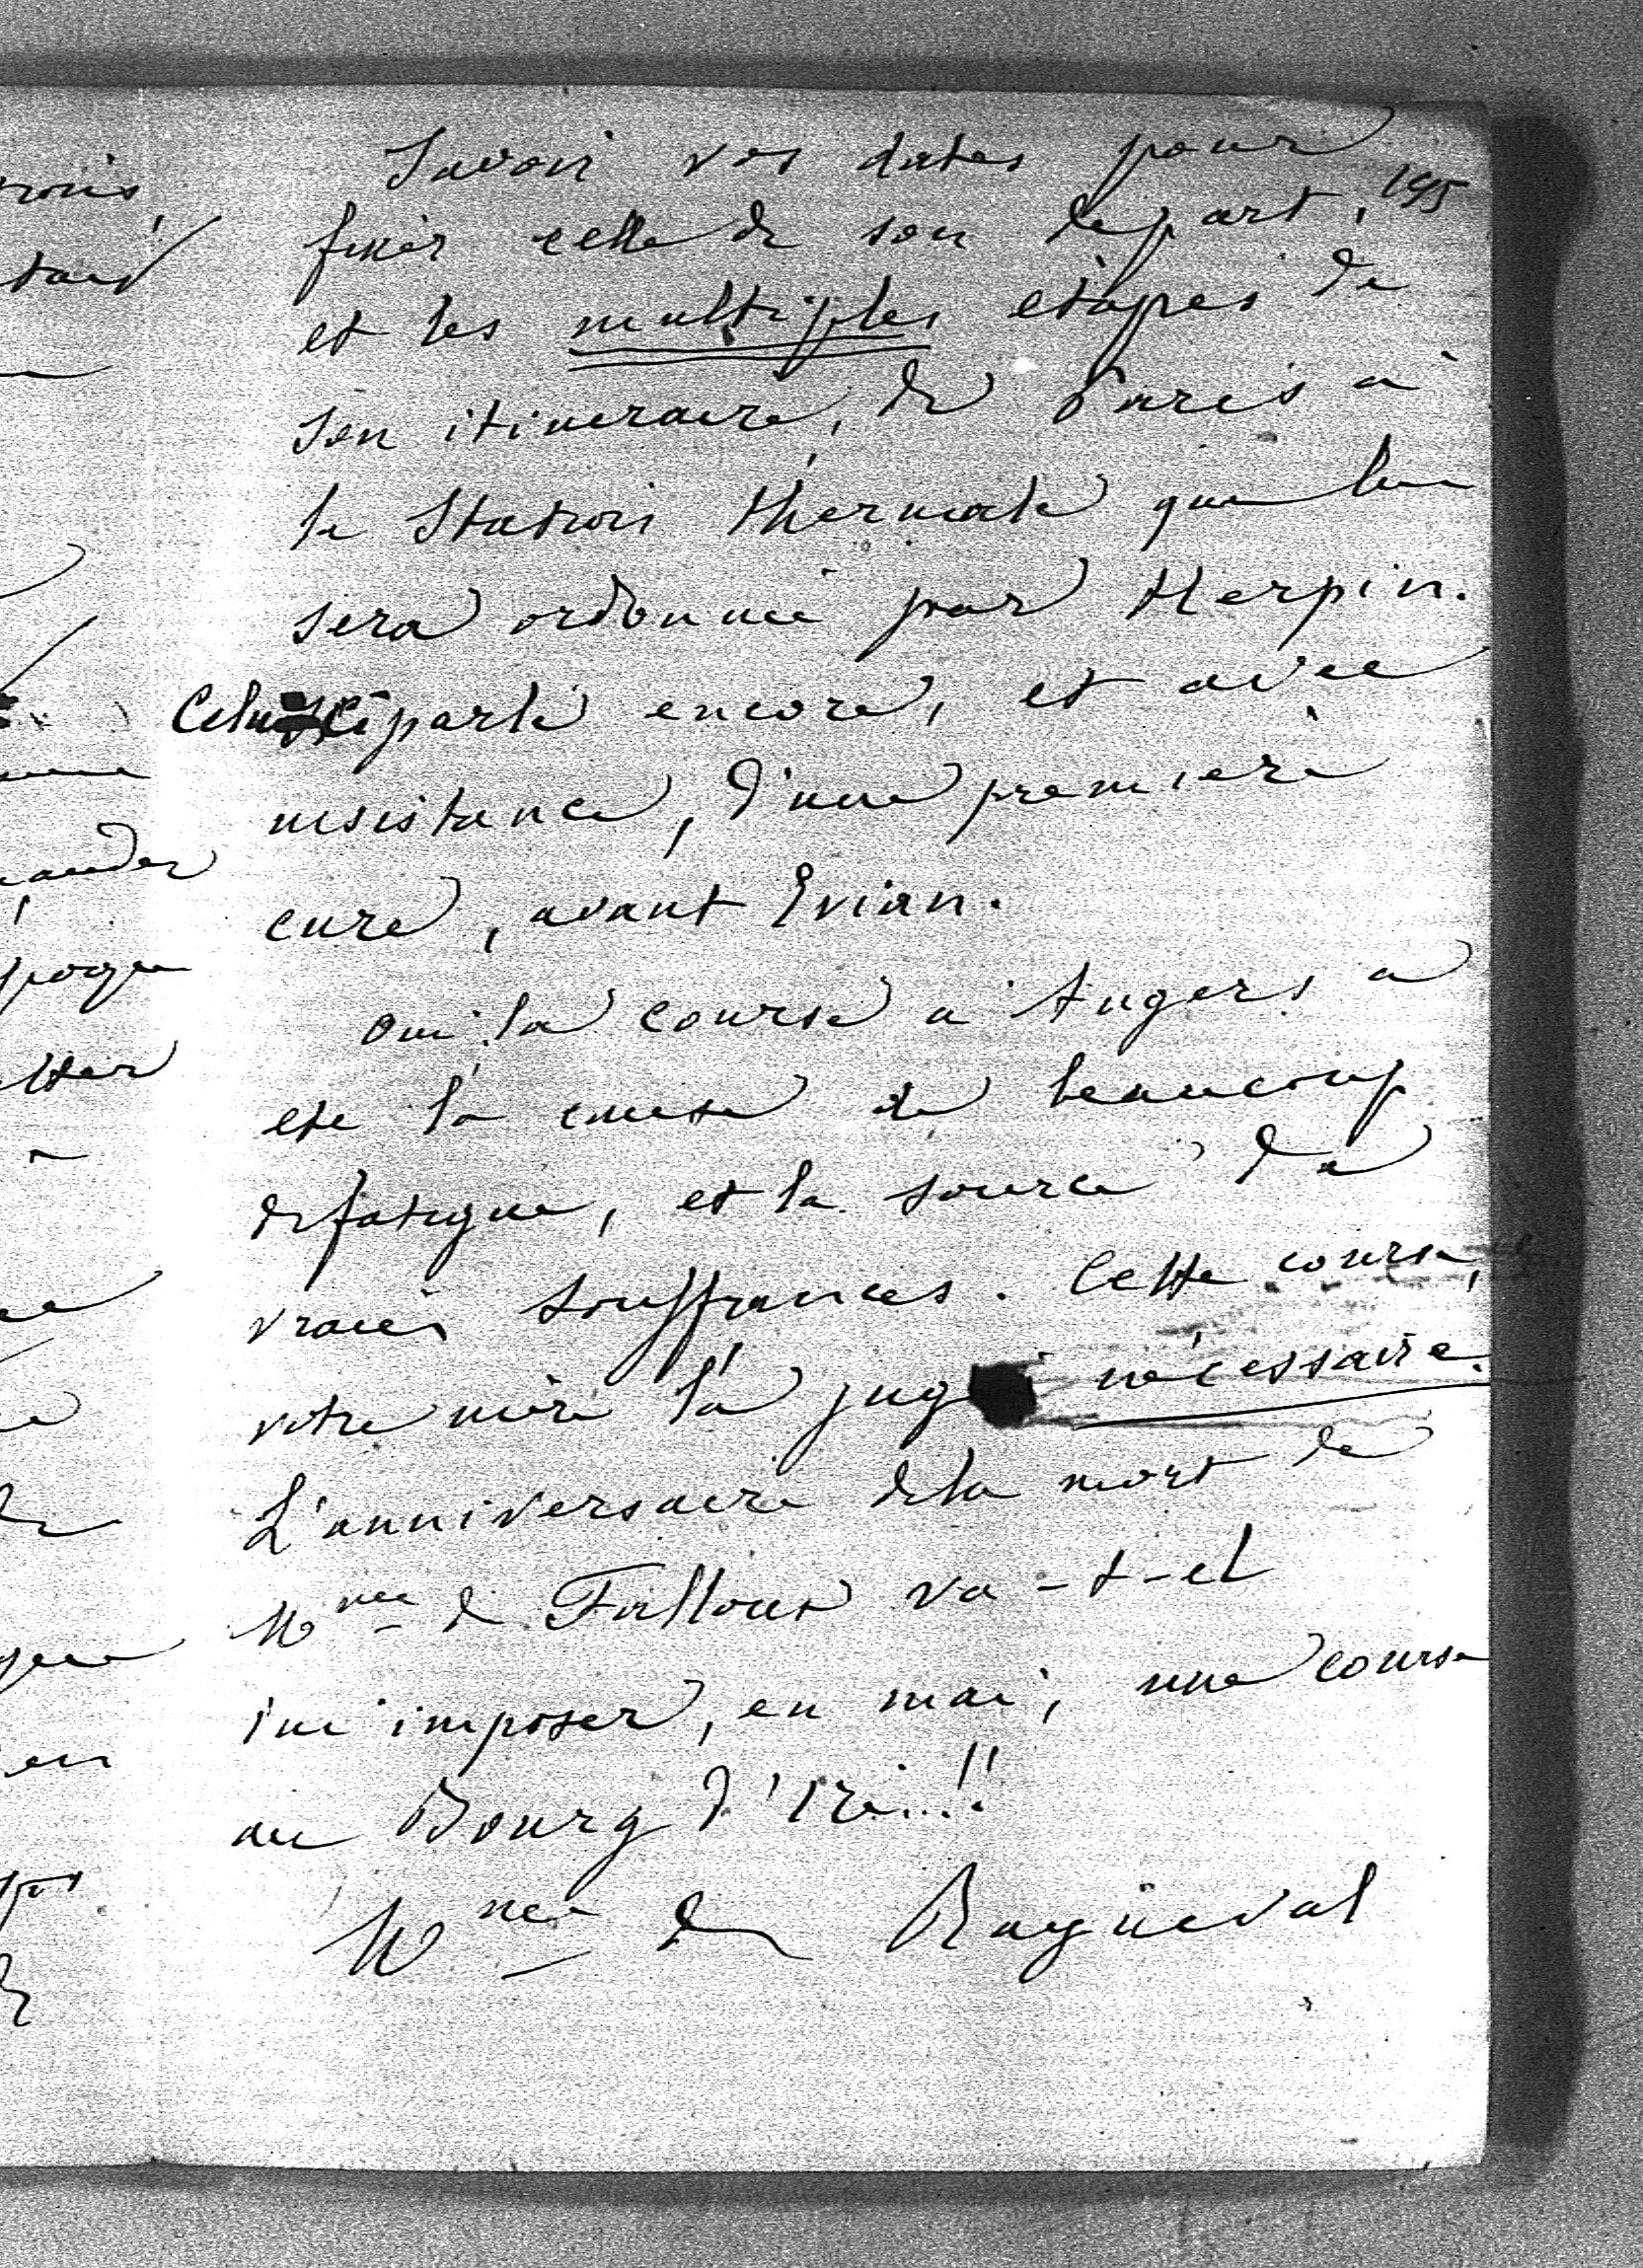 savoir vos dates pour
195
fixer celle de son depart,
et les multiples etapes de
son itineraire, de Paris à
la station thermale que lui
sera ordonnée par Herpin.
Celui-ci parle encore, et avec
insistance, d'une première
cure, avant Evian.
oui, la course à Angers a
ete la cause de beaucoup
de fatigue, et la source de
vraies souffrances. Cette course,
votre mère la jugé nécessaire.
L'anniversaire de la mort de
Mme de Falloux va-t-el
lui imposer, en mai, une course
au Bourg d'Iré...!!
Mme de Rayneval